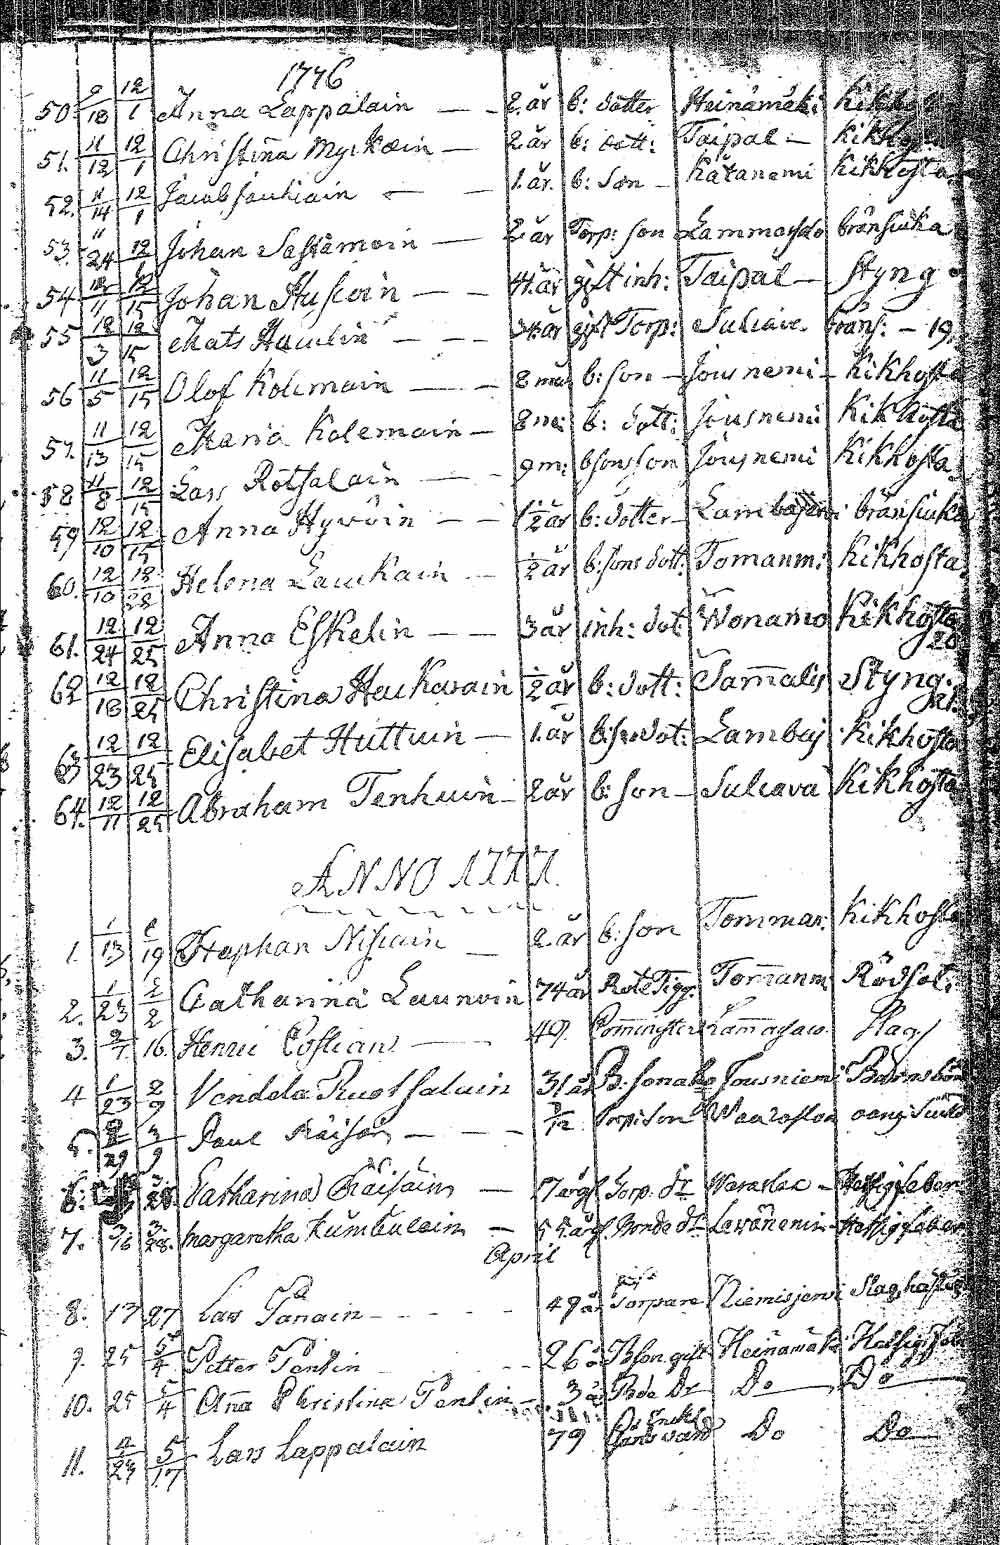 1776
50. 9/18 12/1 Anna Lappalain — — 2. år b: dotter Heinämäki kikhosta
51. 11/12 12/1 Christina Myckäin — 2 år b: dott: Taipal — kikhosta
52. 11/14 12/1 Jacob Jauhiain — — 1. år. b: son — Kätanemi kikhosta
53. 11/24 12/1 Johan Sastamoin — 2 år Torp: son bränsiuka
54 11/15 Johan Huscoin — — 44 år gift inh: Taipal — Styng
55 12/3 12/15 Mats — — — 34 år gift Torp: Suliava bräns: — 19.
56 11/5 12/15 Olof Kolemain — — 8 må b: son — Jousnemi — Kikhosta
57. 11/13 12/15 Maria Kolemain — 8 må: b: dott: Jousnemi Kikhosta
58 11/8 12/15 Lars Rötsalain — — 9 m: b sons son Jousnemi Kikhosta
59 12/10 12/15 Anna Hyvöin — — 1 1/2 år b: dotter — Lambajärvi bränsiuka
60. 12/10 12/22 Helena Laukain — 1/2 år b: sons dott: Tomanm: kikhosta
61. 12/24 12/25 Anna Eskelin — — 3 år inh: dot Wonamo Kikhosta 20
62 12/18 12/25 Christina Haukarain 1/2 år b: dott: Sam̄alis Styng. 21.
63 12/23 12/25 Elisabet Huttuin — 1. år b: so dot: Lambaj kikhosta
64. 12/11 12/25 Abraham Tenhuin — 2 år b: son — Suliava Kikhosta
ANNO 1777.
1. 1/13 1/19 Staphan Niscain — 2. år b: son Tomman: kikhosta
2. 1/23 2/2 Catharina Launoin 74 år Rote Tigg. Tom̄anm: Rödsot:
3. 2/7 16. Henric Costian — 49. Slag
4 1/23 2/9 Vendela Ruotsalain 31 år B: sona Jousniemi Barnsbörd
5. 2/29 3/9 Paul Räisän — — — 3/12 Torp: son
6: Catharina Räisäin — 17 årgl Torp. dr Warasla — Hetsig feber
7. 3/16 3/28. Margaretha Kumbulain — 55 år Bonde dr Levänemi — Hetsig feber
April
8. 13 27 Lars Tanain — — — 49 år Torpare Niemisjervi Slag
9. 25 5/4 Petter Penkin — — 26 år B son gift Heinämäki Hetsig
10. 25 5/4 Añna Christina Penkin — 3 år Bde Dr Do Do
11. 4/23 5/17 Lars Lappalain 79 Do Do